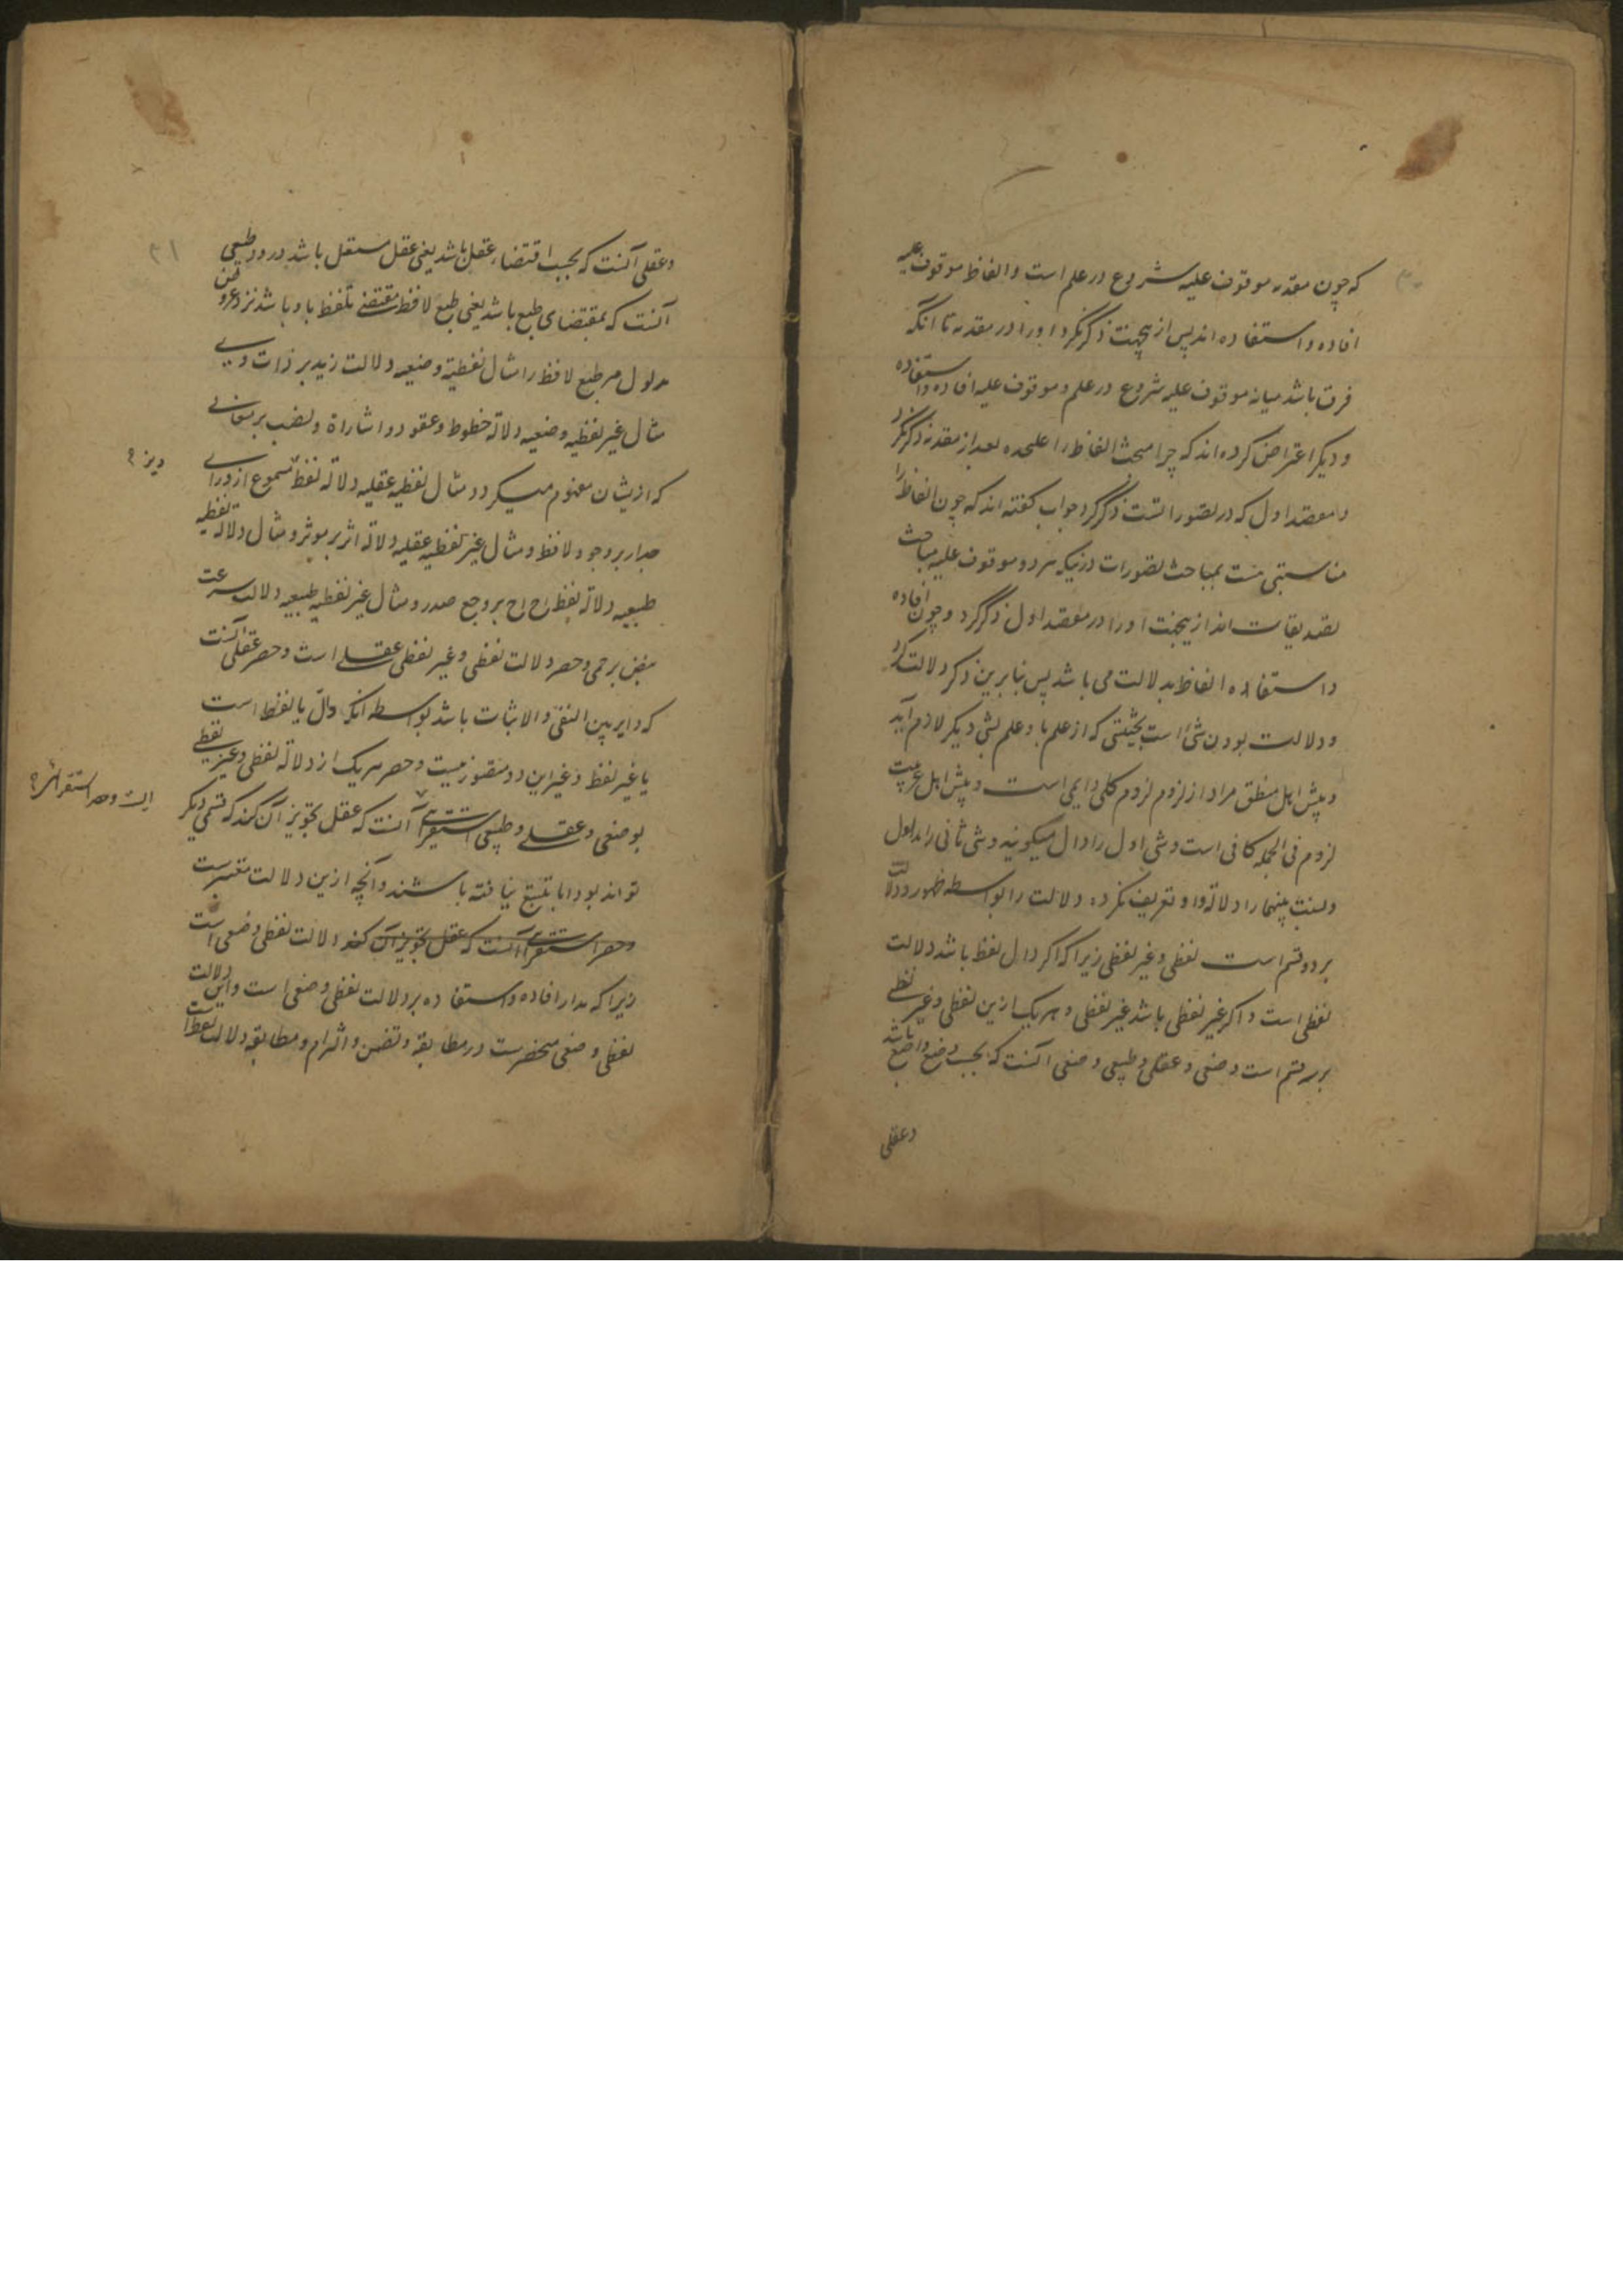 که چون مقدمه موقوف علیه شروع در علم است و الفاظ موقوف علیه
افاده و استفاده اند پس ازیجهت ذکر نکرد اورا در مقدمه تا انکه
فرق باشد میانه موقوف علیه شروع در علم و موقوف علیه افاده و استفاده
و دیکر اعتراض کرده اند که چرا مبحث الفاظ را علیحده بعد از مقدمه ذکر نکرد
و در مقصد اول که در تصوراتست ذکر کرد جواب کفته اند که چون الفاظ را
مناسبتی هست بمباحث تصورات درینکه هر دو موقوف علیه مباحث
تصدیقات اند ازیجهت اورا در مقصد اول ذکر کرد و چون افاده
و استفاده الفاظ بدلالت می باشد پس بنابرین ذکر دلالت کرد
و دلالت بودن شئ است بحیثیتی که از علم باو علم بشئ دیکر لازم آید
و پیش اهل منطق مراد از لزوم لزوم کلی دایمی است و پیش اهل عربیت
لزوم فی الجمله کافی است و شئ اول را دال میکویند و شئ ثانی را مدلول
و نسبت بینهما را دلالة و او تعریف نکرده دلالت را بواسطه ظهور و دلالت
بر دو قسم است لفظی و غیر لفظی زیرا که اکر دال لفظ باشد دلالت
لفظی است و اکر غیر لفظی باشد غیر لفظی و هر یک ازین لفظی و غیر لفظی
بر سه قسم است وضعی و عقلی و طبیعی وضعی آنست که بحسب وضع واضع باشد
وعقلی
۳۱
وعقلی آنست که بحسب اقتضاء عقل باشد یعنی عقل مستقل باشد درو و طبیعی
آنست که بمقتضای طبع باشد یعنی طبع لافظ مقتضی تلفظ باو باشد نزد عروض
مدلول مر طبع لافظ را مثال لفظیة وضعیه دلالت زید بر ذات وی
مثال غیر لفظیه وضعیه دلالة خطوط وعقود و اشاراة و نصب بر معانی
که ازیشان مفهوم میکردد مثال لفظیه عقلیه دلالة لفظ مسموع از ورای
جدار بر وجود لافظ و مثال غیر لفظیه عقلیه دلالة اثر بر موثر و مثال دلالة لفظیه
طبیعیه دلالة لفظ اح اح بر وجع صدر و مثال غیر لفظیه طبیعیه دلالت سرعت
نبض بر حمی و حصر دلالت لفظی و غیر لفظی عقلی است و حصر عقلی آنست
که دایر بین النفی و الاثبات باشد بواسطه انکه دال یا لفظ است
یا غیر لفظ و غیر این دو متصور نیست و حصر هر یک از دلالة لفظی و غیر لفظی
بوضعی و عقلی و طبیعی استقرایی آنست که عقل تجویز آن کند که قسمی دیکر
تواند بود اما بتتبع نیافته باشند و آنچه ازین دلالت معتبرست
و حصر استقرایی آنست که عقل تجویز آن کند دلالت لفظی وضعی است
زیرا که مدار افاده و استفاده بر دلالت لفظی وضعی است و این دلالت
لفظی وضعی منحصرست در مطابقه و تضمن و التزام و مطابقه دلالت لفظ است
است و حصر استقرائی